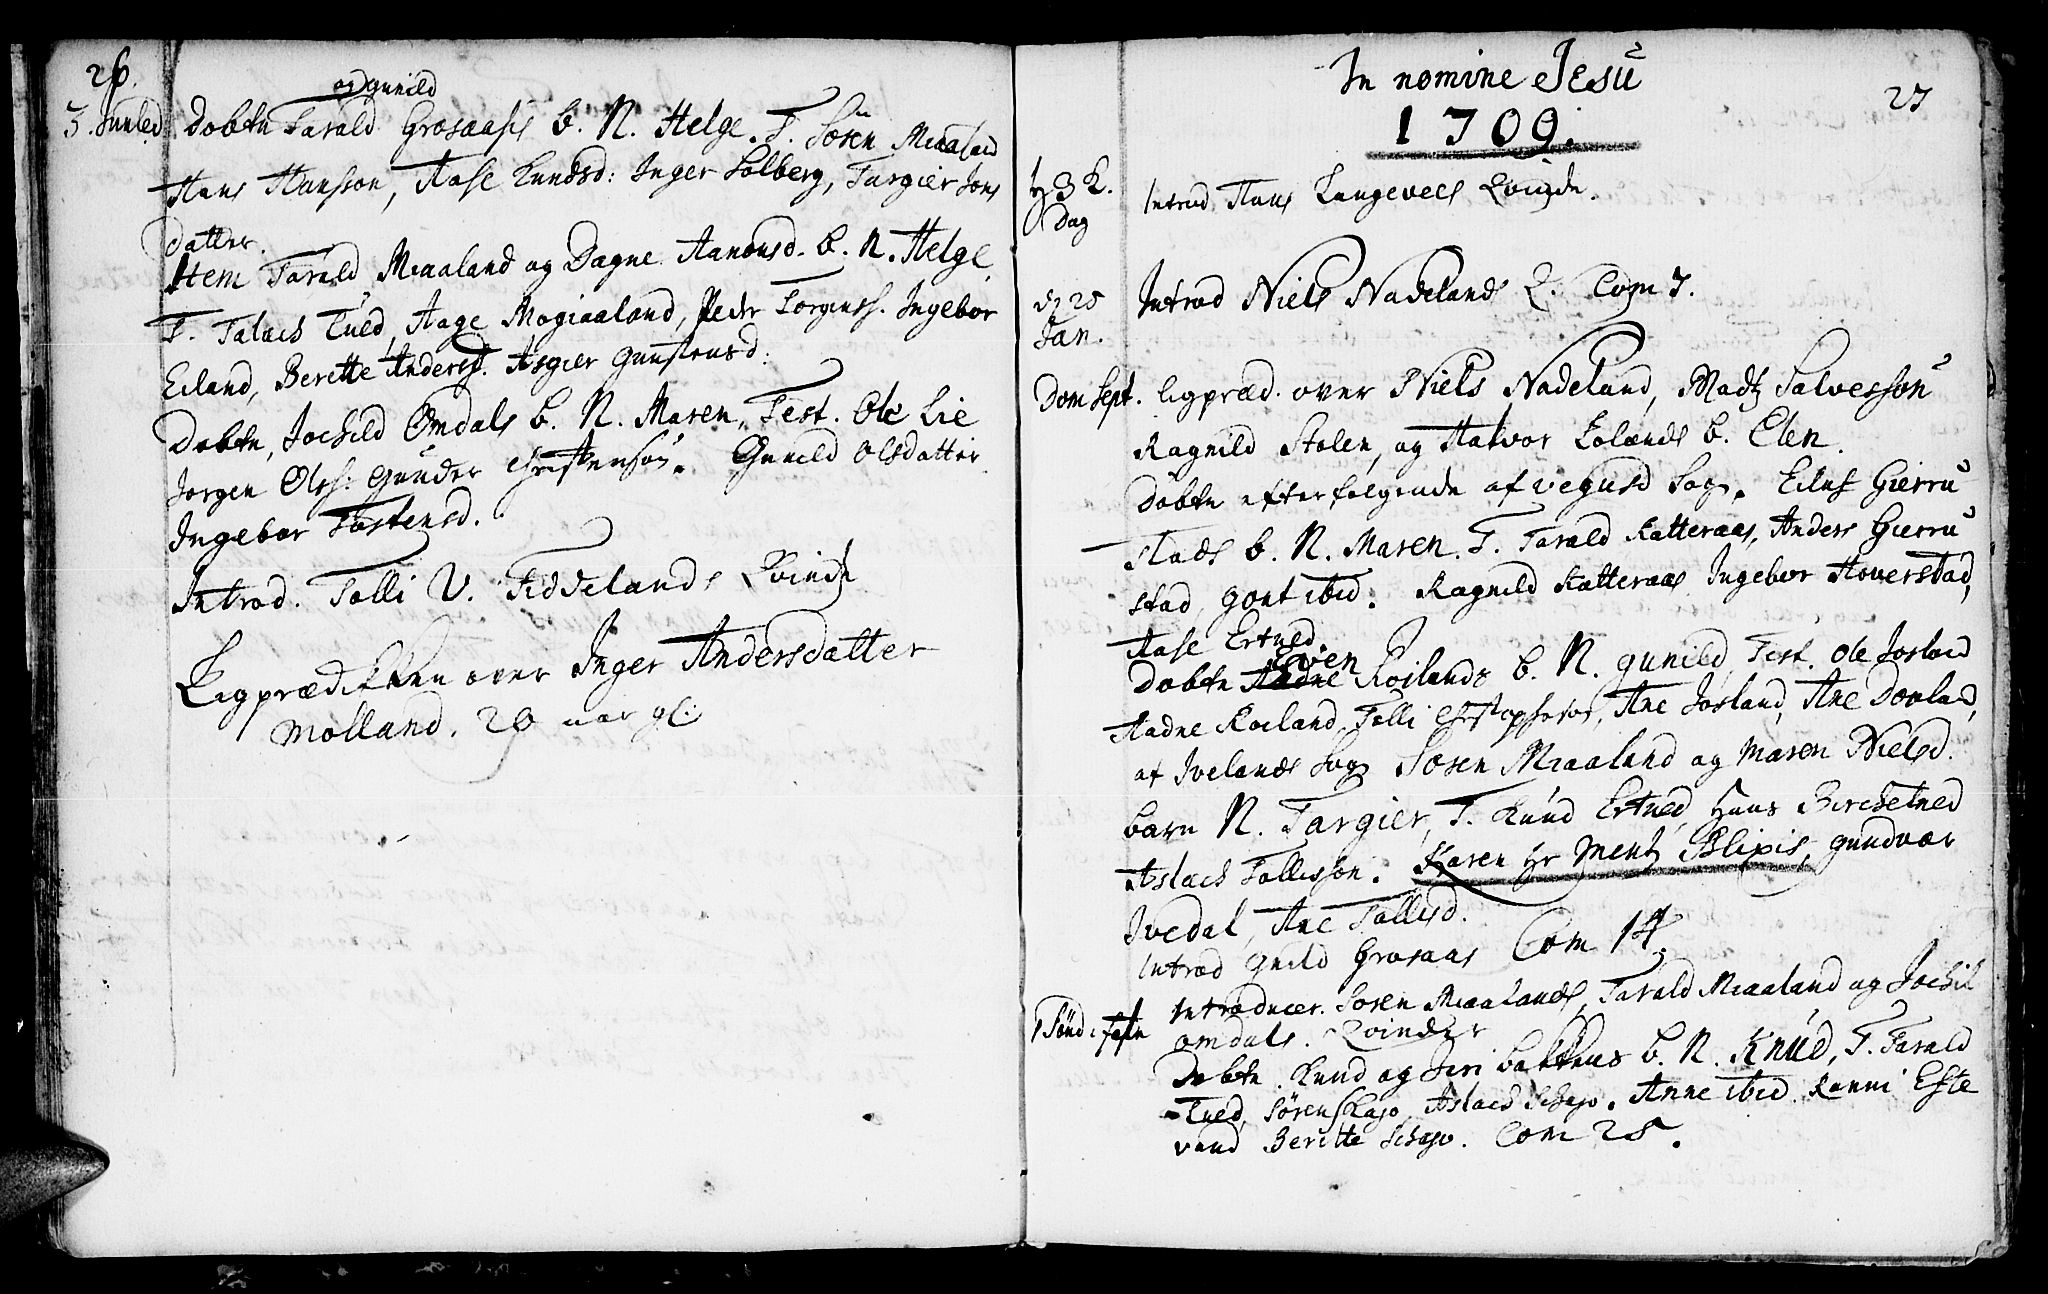 26.
og gunild
3. Juuled. Dobte Tarald Grosaases b. N. Helge. T. Søren Miaaland
Hans Hansson, Aase Knudsd: Inger Solberg, Targier Jons
datter.
Item Tarald Miaaland og Dagne Aanonsd. b. N. Helge.
T. Talach Tued, Aage Mogiaaland, Peder Torgerss. Ingebor
Eiland, Berette Andersd. Asgier Gunstensd:
Dobte, Jochild Omdals b. N. Maren, Test. Ole Lie
Jorgen Olss: Gunder Christenson. Gunild Olsdatter
Ingebor Tostensd.
Introd. Tolli V. Fiddelands Kvinde
Ligprædikken over Inger Andersdatter
Molland. 20 aar gl:
27
In nomine Jesu
1709.
H 3 K.
Dag
Introd Hans Langevels Kvinde.
d. 20
Jan.
Introd Niels Nadelands K. Com 7.
Dom Sept. Ligpræd. over Niels Nadeland, Madtz Salvesson
Ragnild Stolen, og Halvor Lolands b. Elen.
Dobte efterfolgende af Vegusd Sogn. Eilef Gierru
stads b. N. Maren. T. Tarald Katteraas, Anders Gierru
stad, gont ibid. Ragnild Katteraas Ingebor Hoverstad,
Aase Ertued
Even
Dobte Aadne Roilands b. N. gunild, Test. Ole Josland
Aadne Roiland, Tolli Christophersøn, Ane Josland, Ane Dovland,
af Ivelands Sogn Søren Miaaland og Maren Nielsd.
barn N. Targier, T. Knud Ertued, Hans Birchetued
Aslach Tollisson. Karen Hr Mentz Blixis, gundvor
Ivedal, Ane Tollisd.
Introd gunild Grosaas Com 14.
1 Sønd: i fasten
Introducer. Soren Miaalands, Tarald Miaaland og Jochil
omdals. Kvinder
Dobte. Knud og Siri bakkens b. N. Knud, T. Tarald
Tued, Søren Skajo, Aslach Schajo. Anne ibid. Ranni Efte
vand Berette Schajo. Com 28.